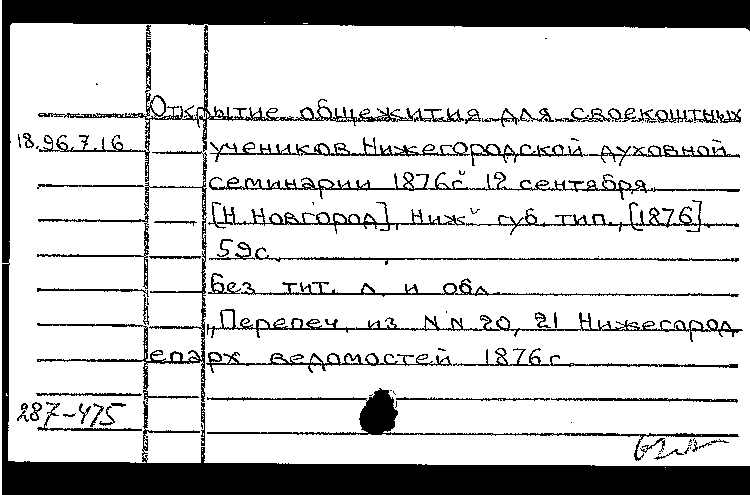 Открытие общежития для своекоштных
18.96.7.16 учеников Нижегородской духовной
семинарии 1876г 12 сентября.
[Н. Новгород], Ниж. губ. тип., [1876].
59с.
Без тит. л. и обл.
„Перепеч. из NN 20, 21 Нижегород.
епарх. ведомостей 1876г.
287-475